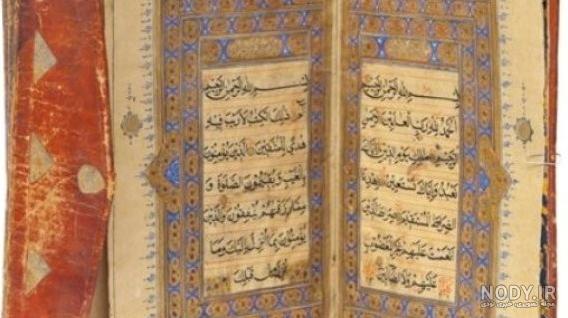 بسم الله الرحمن الرحيم
الحمد لله رب العالمين الرحمن
الرحيم ملك يوم الدين اياك
نعبد واياك نستعين اهدنا
الصراط المستقيم صراط الذين
انعمت عليهم غير المغضوب
عليهم ولا الضالين
بسم الله الرحمن الرحيم
الم ذلك الكتب لا ريب فيه
هدى للمتقين الذين يؤمنون
بالغيب ويقيمون الصلوة و
مما رزقنهم ينفقون والذين
يؤمنون بما انزل اليك وما
انزل من قبلك
NODY.IR